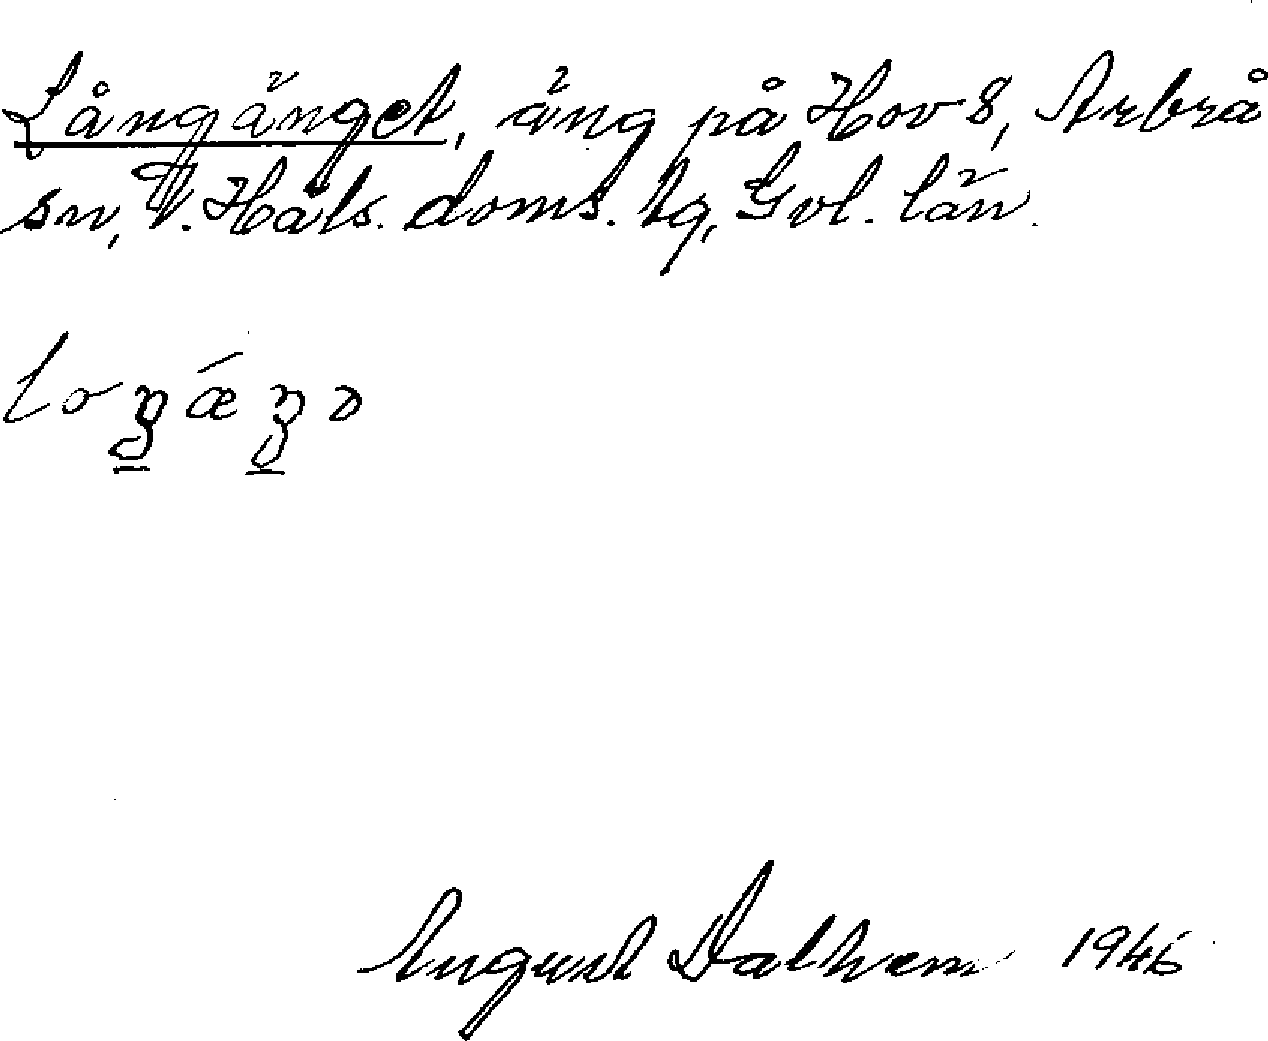 Långänget, äng på Hov 8, Arbrå
sn, V. Häls. doms. tg, Gvl. län.
loŋǽŋə
August Dalhem 1946